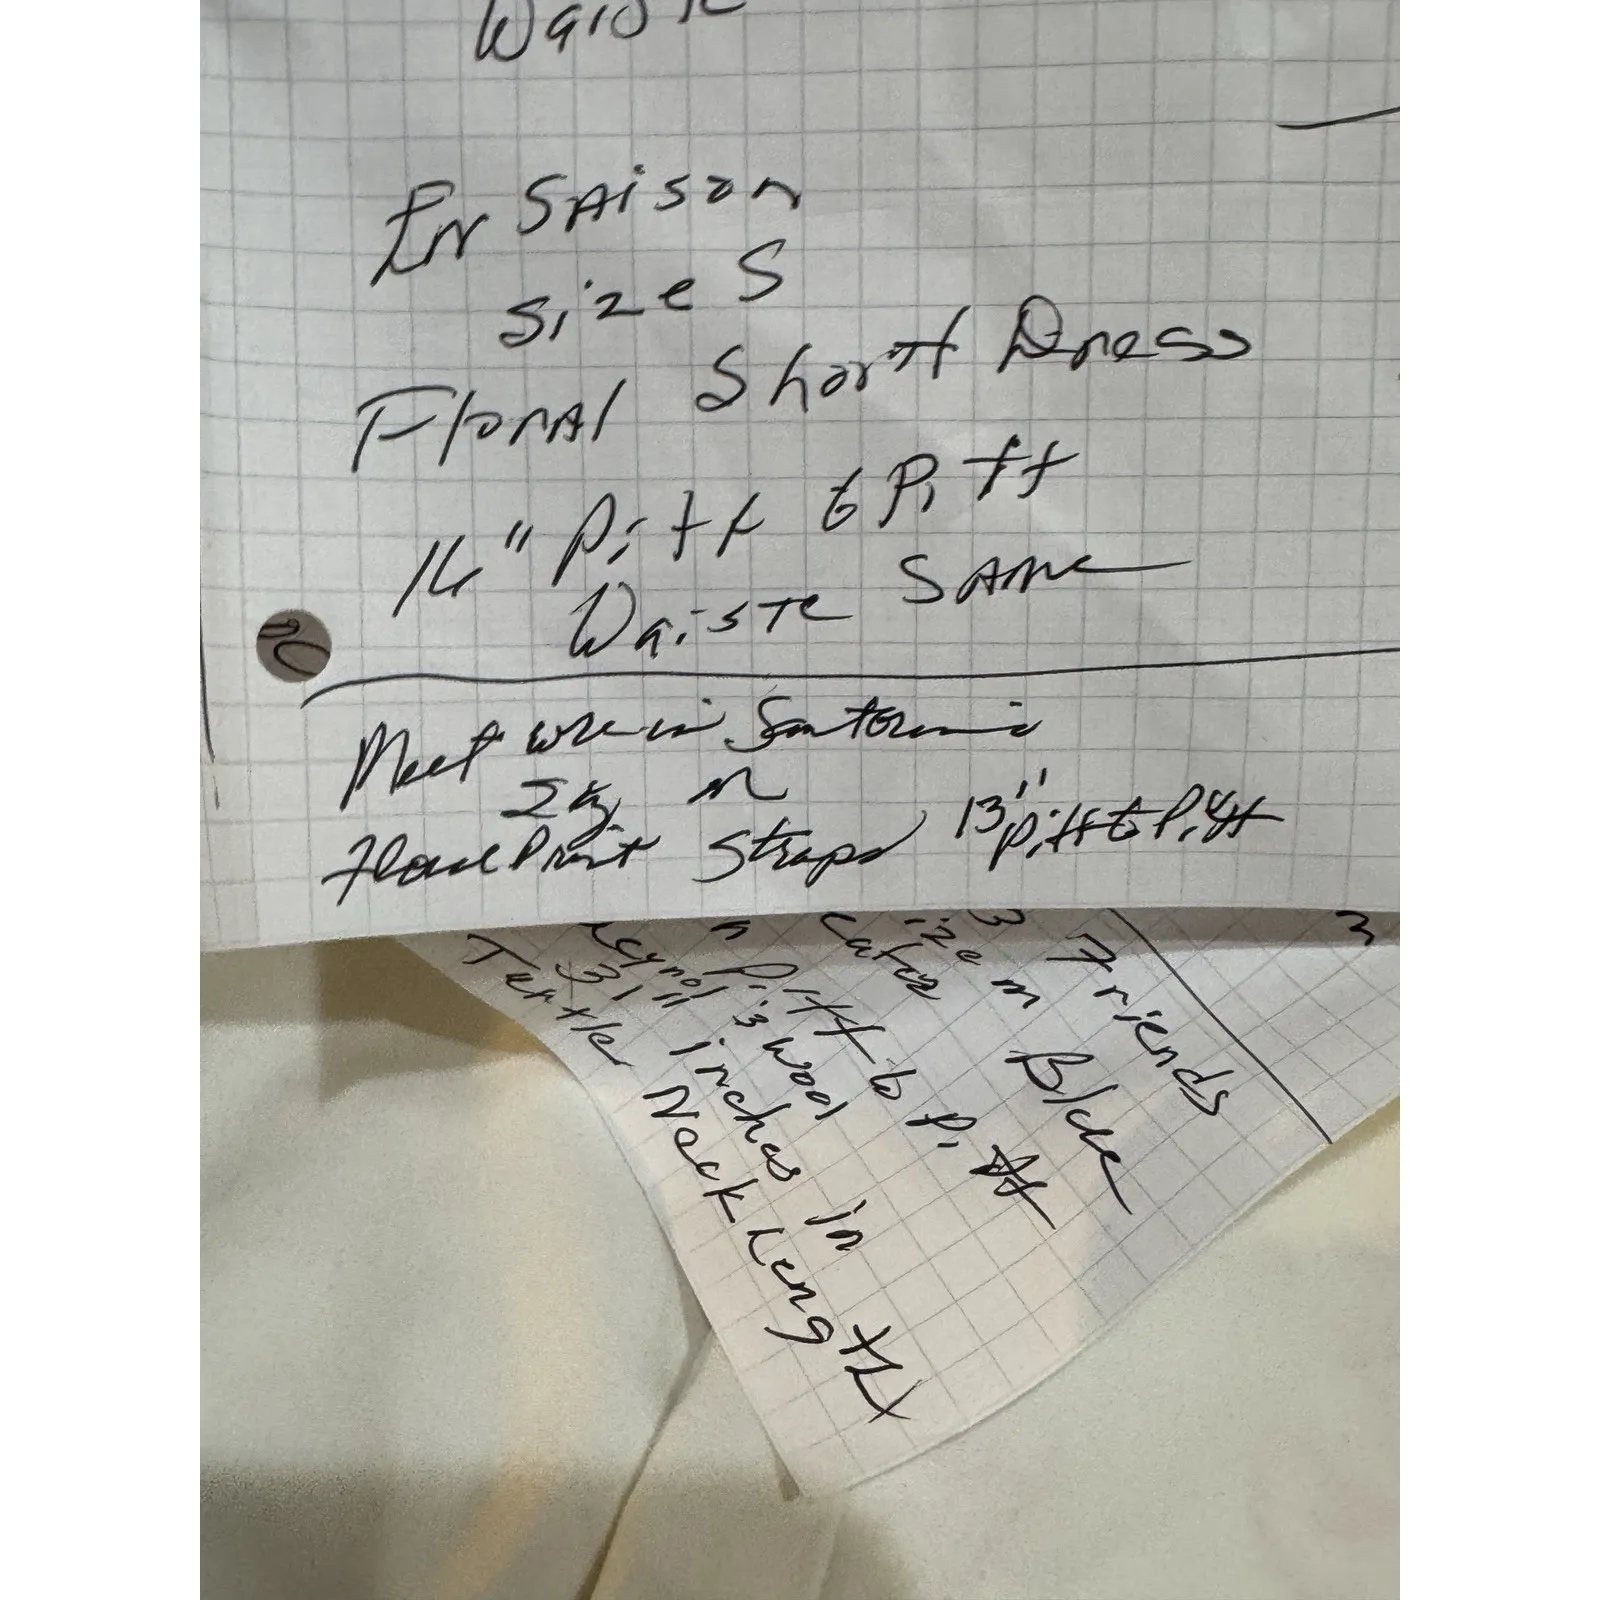 En SAison
size S
Floral Short Dress
16" Pitt to Pitt
Waiste SAme
Meet me in Santorini
Sz m
Floral Print Straps 13" Pitt to Pitt
3 Friends
ize m Black
n Pitt to Pitt
wool
31" inches in
Tertler Neck Length